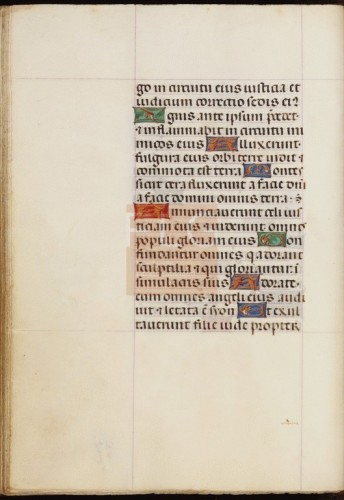 go in circuitu eius iusticia et
iudicium correctio sedis ei⁹
Ignis ante ipsum precet
& inflammabit in circuitu ini
micos eius Illuxerunt
fulgura eius orbi terre uidit &
commota est terra Montes
sicut cera fluxerunt a facie dni
a facie domini omnis terra · &
Annunciauerunt celi ius
ticiam eius & uiderunt omnes
populi gloriam eius Con
fundantur omnes q adorant
sculptilia & qui gloriantur i
simulacris suis Adorate
eum omnes angeli eius audi
uit & letata ē syon Et exul
tauerunt filie iude propter